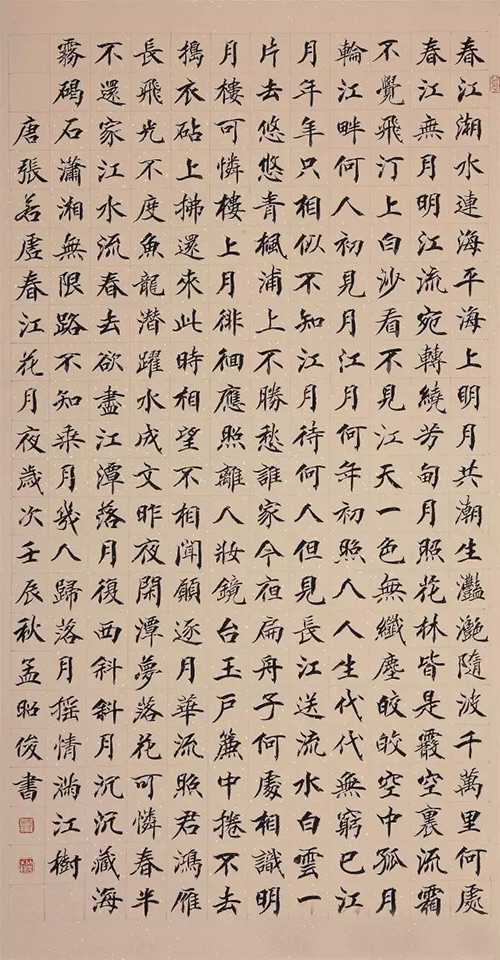 春江湖水連海平海上明月共潮生灩灔隨波千萬里何處
春江無月明江流宛轉繞芳甸月照花林皆是霰空裏流霜
不覺飛汀上白沙看不見江天一色無纖塵皎皎空中孤月
輪江畔何人初見月江月何年初照人人生代代無窮已江
月年年只相似不知江月待何人但見長江送流水白雲一
片去悠悠青楓浦上不勝愁誰家今夜扁舟子何處相識明
月樓可憐樓上月徘徊應照離人妝鏡台玉戶簾中捲不去
搗衣砧上拂還來此時相望不相聞願逐月華流照君鴻雁
長飛光不度魚龍潛躍水成文昨夜閑潭夢落花可憐春半
不還家江水流春去欲盡江潭落月復西斜斜月沉沉藏海
霧碣石瀟湘無限路不知乘月幾人歸落月搖情滿江樹
唐張若虛春江花月夜歲次壬辰秋孟昭俊書